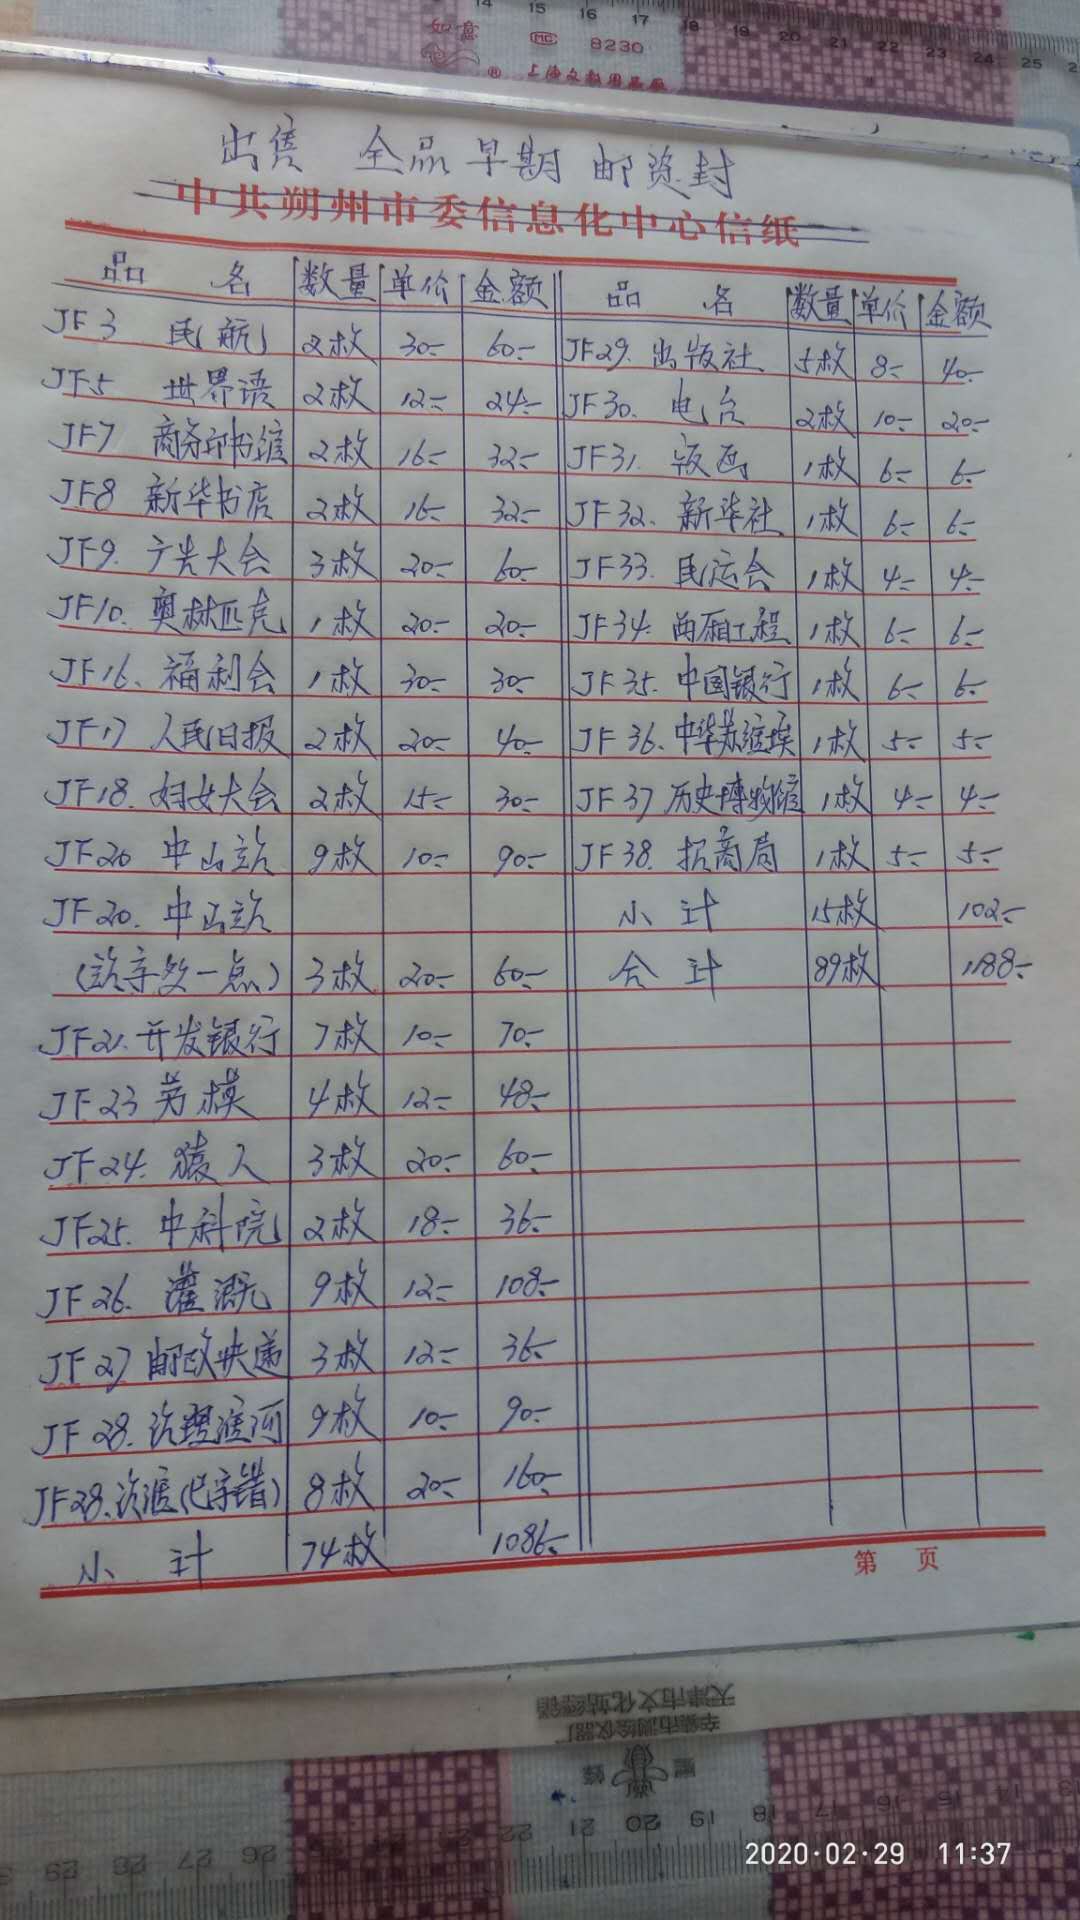 14 15 16 17 18 19 20 21 22 23 24 25
如意 MC 8230
® 上海文教用品厂
出售 全品早期邮资封
中共朔州市委信息化中心信纸
品名 数量 单价 金额 品名 数量 单价 金额
JF3 民航 2枚 30- 60- JF29. 出版社 5枚 8- 40-
JF5 世界语 2枚 12- 24- JF30. 电台 2枚 10- 20-
JF7 商务印书馆 2枚 16- 32- JF31. 版画 1枚 6- 6-
JF8 新华书店 2枚 16- 32- JF32. 新华社 1枚 6- 6-
JF9. 广告大会 3枚 20- 60- JF33. 民运会 1枚 4- 4-
JF10. 奥林匹克 1枚 20- 20- JF34. 两厢工程 1枚 6- 6-
JF16. 福利会 1枚 30- 30- JF35. 中国银行 1枚 6- 6-
JF17 人民日报 2枚 20- 40- JF36. 中华苏维埃 1枚 5- 5-
JF18. 妇女大会 2枚 15- 30- JF37 历史博物馆 1枚 4- 4-
JF20 中山站 9枚 10- 90- JF38. 招商局 1枚 5- 5-
JF20. 中山站 小计 15枚 102-
(站字少一点) 3枚 20- 60- 合计 89枚 1188-
JF21. 开发银行 7枚 10- 70-
JF23 劳模 4枚 12- 48-
JF24. 猿人 3枚 20- 60-
JF25. 中科院 2枚 18- 36-
JF26. 灌溉 9枚 12- 108-
JF27 邮政快递 3枚 12- 36-
JF28. 治理淮河 9枚 10- 90-
JF28. 治淮(巳字错) 8枚 20- 160-
小计 74枚 1086-
第 页
天津市文化站经销
29 28 27 26 22 21 20 19 18 17 16 15 14 13
2020·02·29 11:37